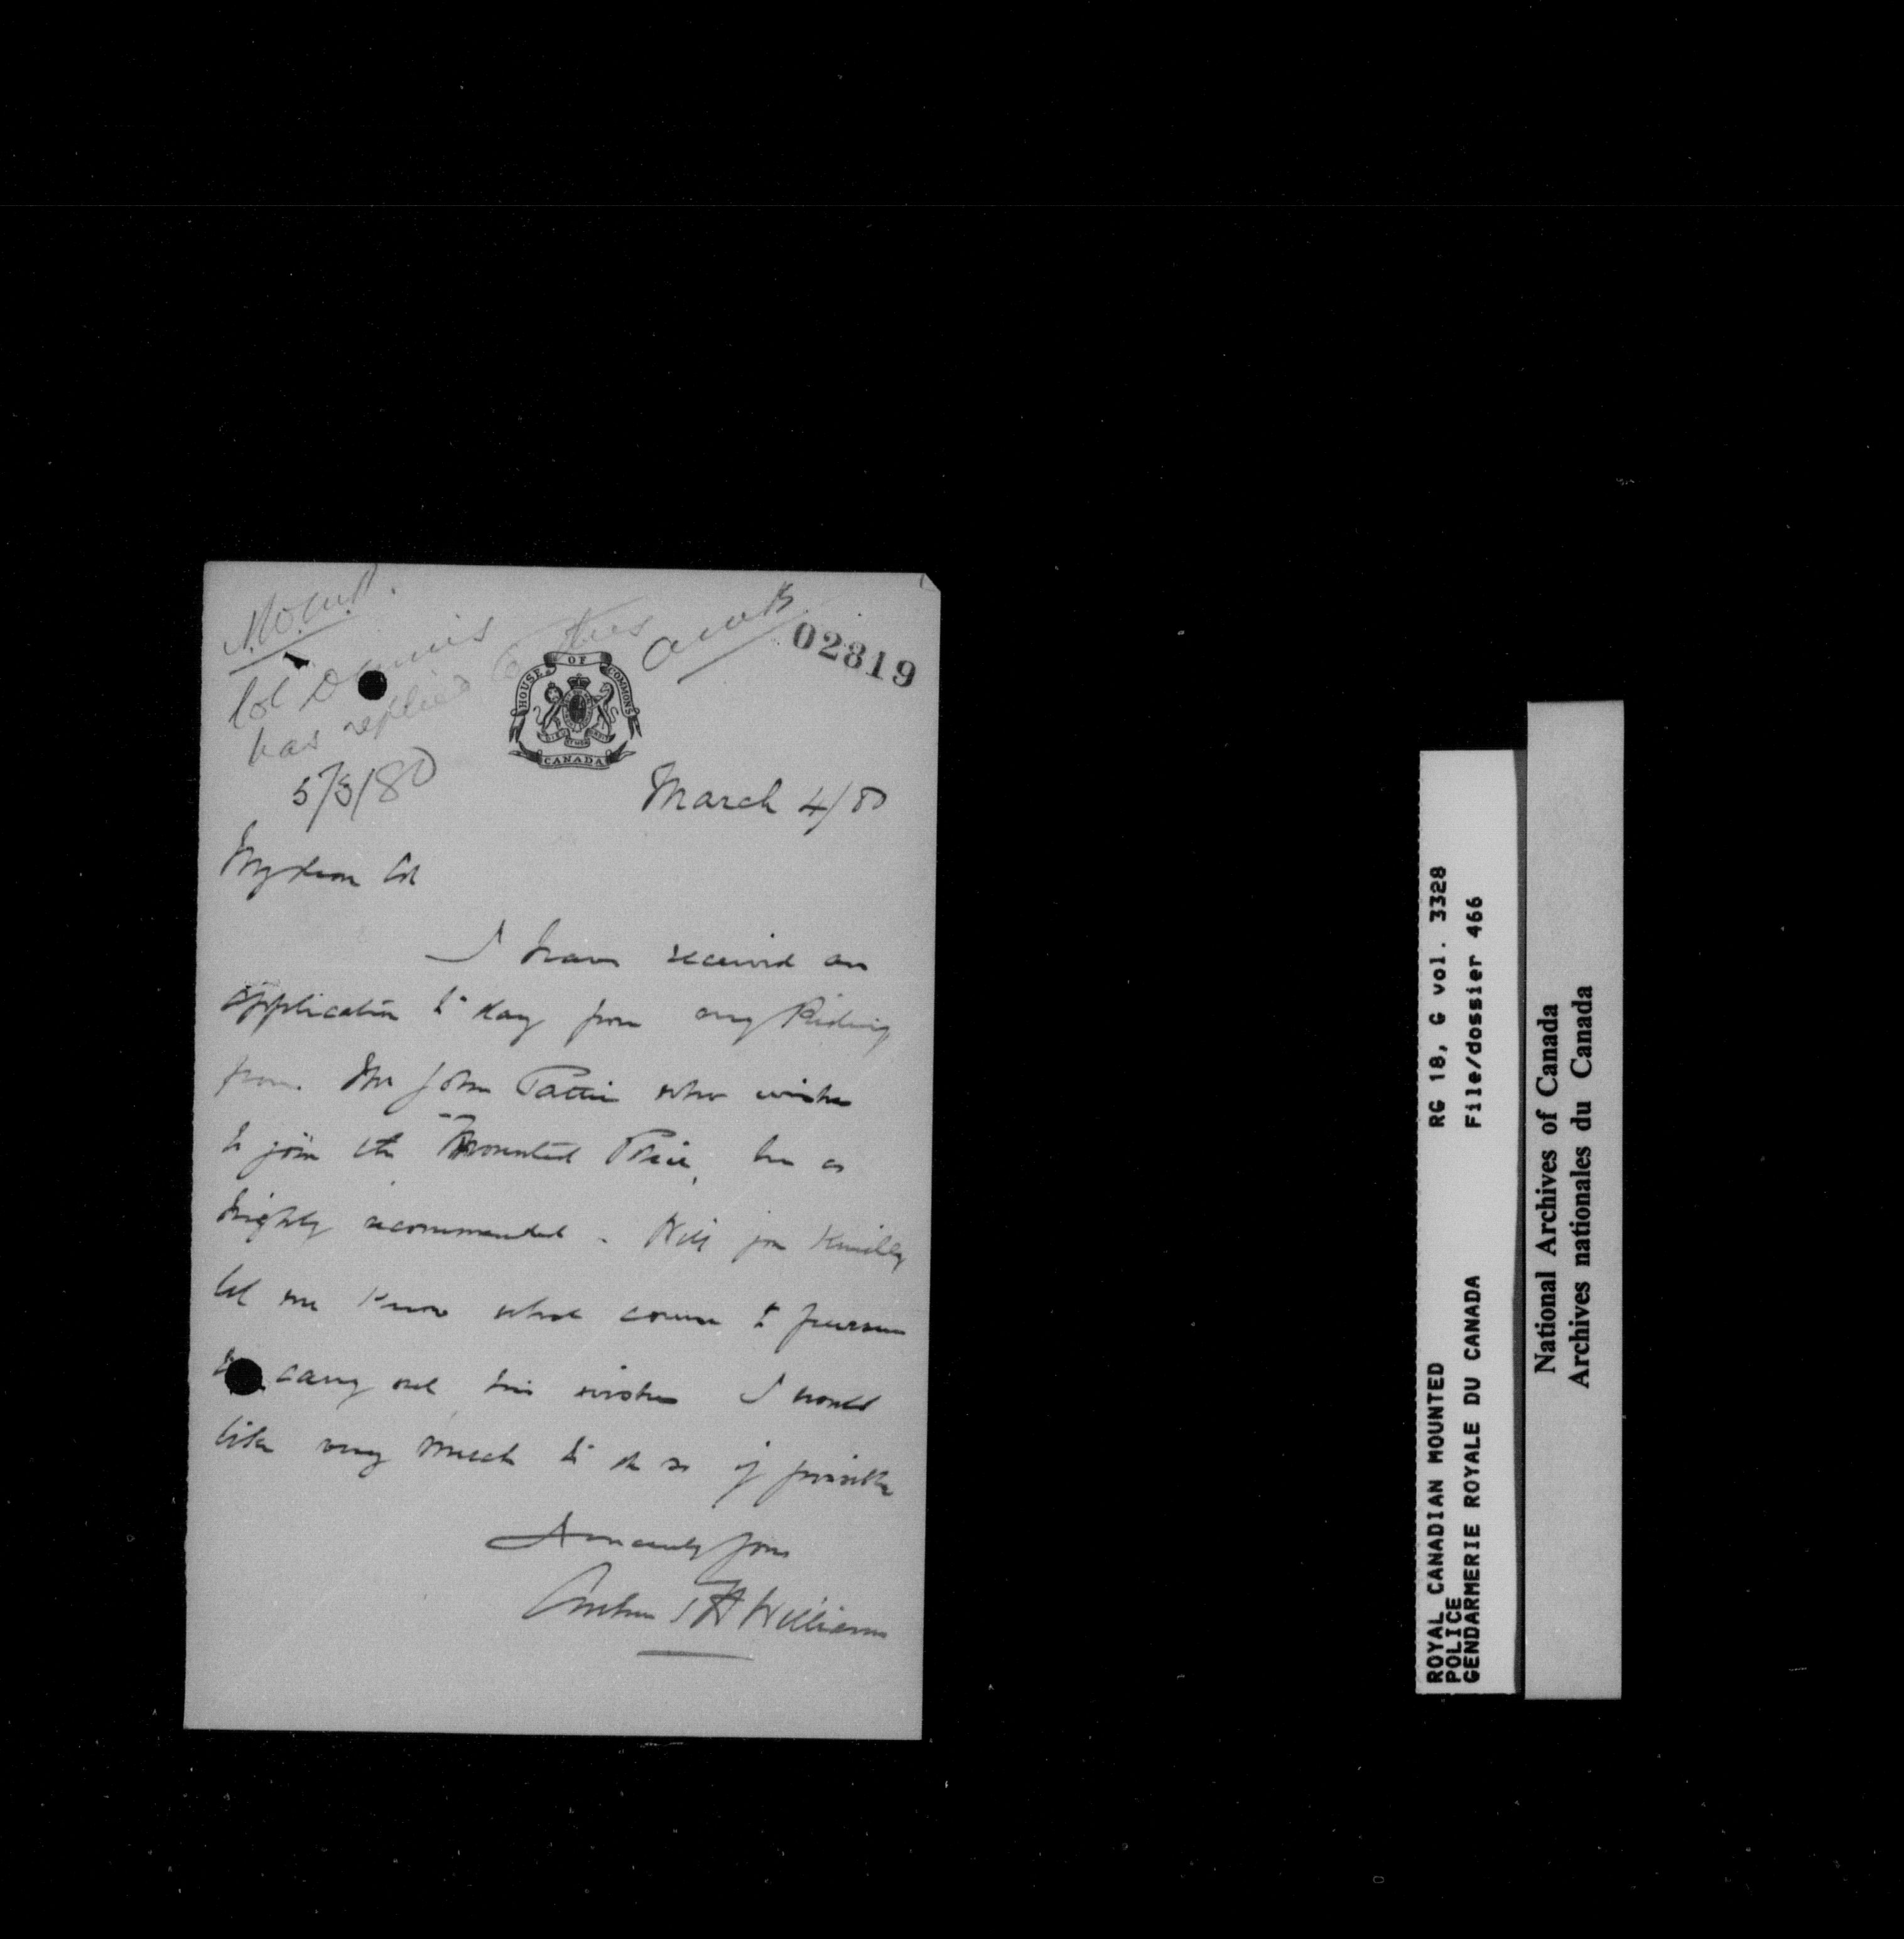 N.W.M.P.
Col Dennis
has replied to this
5/3/80
02819
HOUSE OF COMMONS
CANADA
March 4/80
My dear Col
I have received an
application to day from my Riding
from Mr John Pattie who wishes
to join the Mounted Police, he is
highly recommended - Will you kindly
let me know what course to pursue
to carry out his wishes I would
like very much to do so if possible
Sincerely yours
Arthur T H Williams
ROYAL CANADIAN MOUNTED
POLICE
GENDARMERIE ROYALE DU CANADA
RG 18, G vol. 3328
File/dossier 466
National Archives of Canada
Archives nationales du Canada